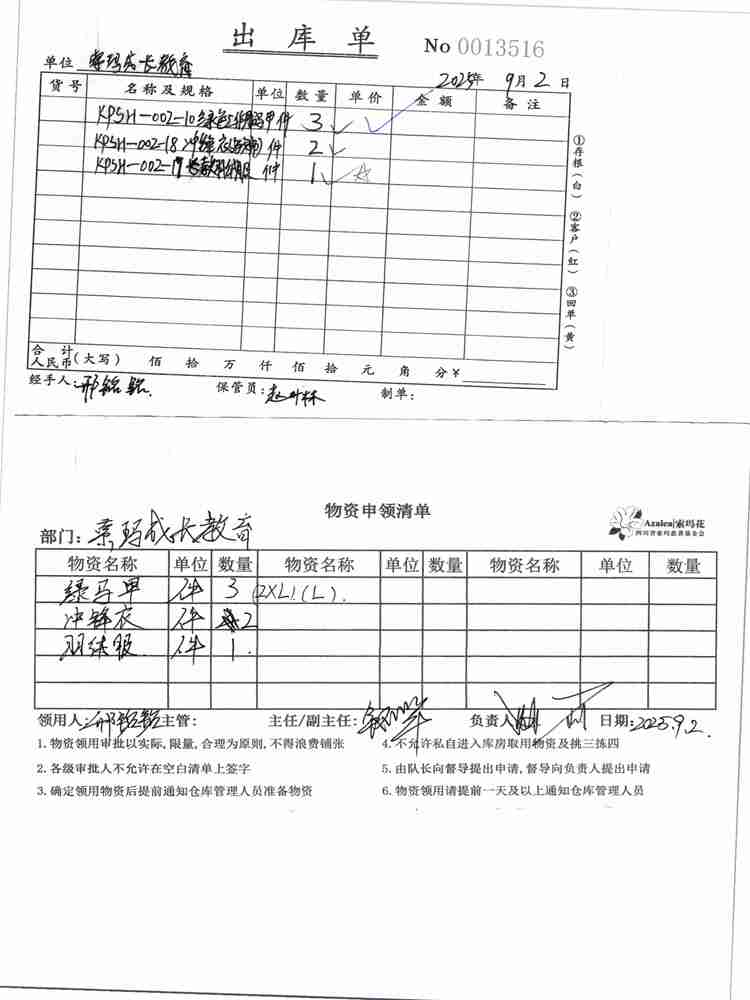 出库单 No 0013516
单位 索玛成长教育 2025年 9月 2 日
货号 名称及规格 单位 数量 单价 金额 备注
KPSH-002-10 绿色 马甲 件 3
KPSH-002-18 冲锋衣 件 2
KPSH-002-17 长款羽绒服 件 1
①存根(白) ②客户(红) ③回单(黄)
合计
人民币(大写) 佰 拾 万 仟 佰 拾 元 角 分 ¥
经手人: 保管员: 制单:
物资申领清单
Azalea|索玛花
四川省索玛慈善基金会
部门: 索玛成长教育
物资名称 单位 数量 物资名称 单位 数量 物资名称 单位 数量
绿马甲 件 3 (2XL)(L).
冲锋衣 件 2
羽绒服 件 1.
领用人: 主管: 主任/副主任: 负责人: 日期: 2025.9.2.
1. 物资领用审批以实际, 限量, 合理为原则, 不得浪费铺张 4. 不允许私自进入库房取用物资及挑三拣四
2. 各级审批人不允许在空白清单上签字 5. 由队长向督导提出申请, 督导向负责人提出申请
3. 确定领用物资后提前通知仓库管理人员准备物资 6. 物资领用请提前一天及以上通知仓库管理人员